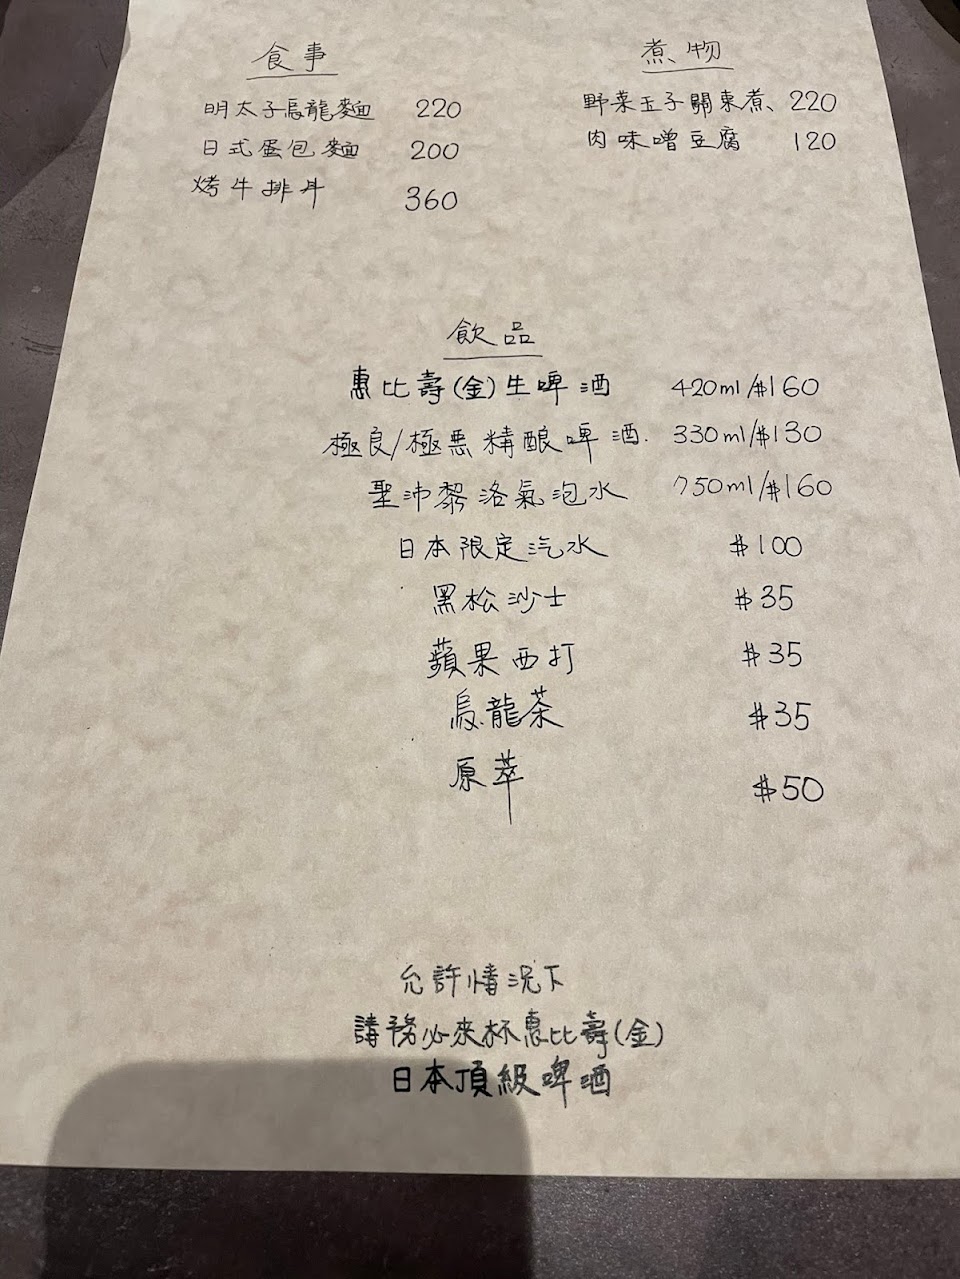 食事
明太子烏龍麵 220
日式蛋包麵 200
烤牛排丼 360
煮物
野菜玉子關東煮、 220
肉味噌豆腐 120
飲品
惠比壽(金)生啤酒 420ml/$160
極良/極惡精釀啤酒. 330ml/$130
聖沛黎洛氣泡水 750ml/$160
日本限定汽水 $100
黑松沙士 $35
蘋果西打 $35
烏龍茶 $35
原萃 $50
允許情況下
請務必來杯惠比壽(金)
日本頂級啤酒